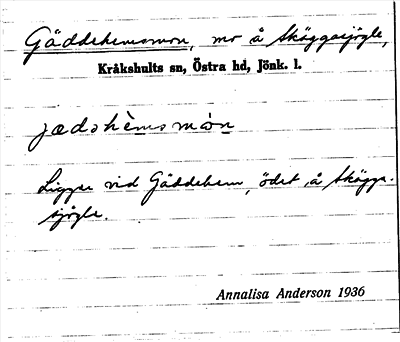 Gäddehemsmon, mo å Skäggesjögle,
Kråkshults sn, Östra hd, Jönk. l.
jædəhèmsmón
Ligger vid Gäddehem, ödet, å Skägge-
sjögle.
Annalisa Anderson 1936